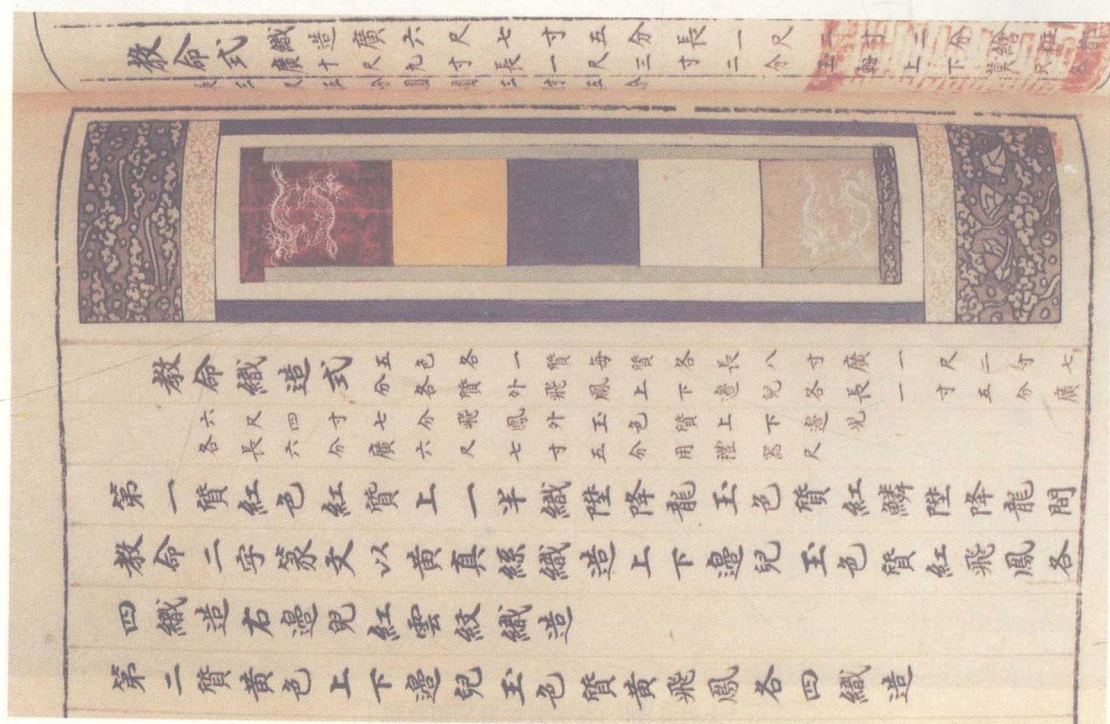 教命式
織造廣六尺七寸五分長一尺
教命織造式
五色各一質每質各長八寸廣一尺二寸七
分各質外飛鳳上下邊兒各長一寸五分廣
六尺四寸七分飛鳳外玉色質上下邊兒
各長六分廣六尺七寸五分用禮器尺
第一質紅色紅質上一半織陞降龍玉色質紅鱗陞降龍間
教命二字篆文以黃真絲織造上下邊兒玉色質紅飛鳳各
四織造右邊兒紅雲紋織造
第二質黃色上下邊兒玉色質黃飛鳳各四織造